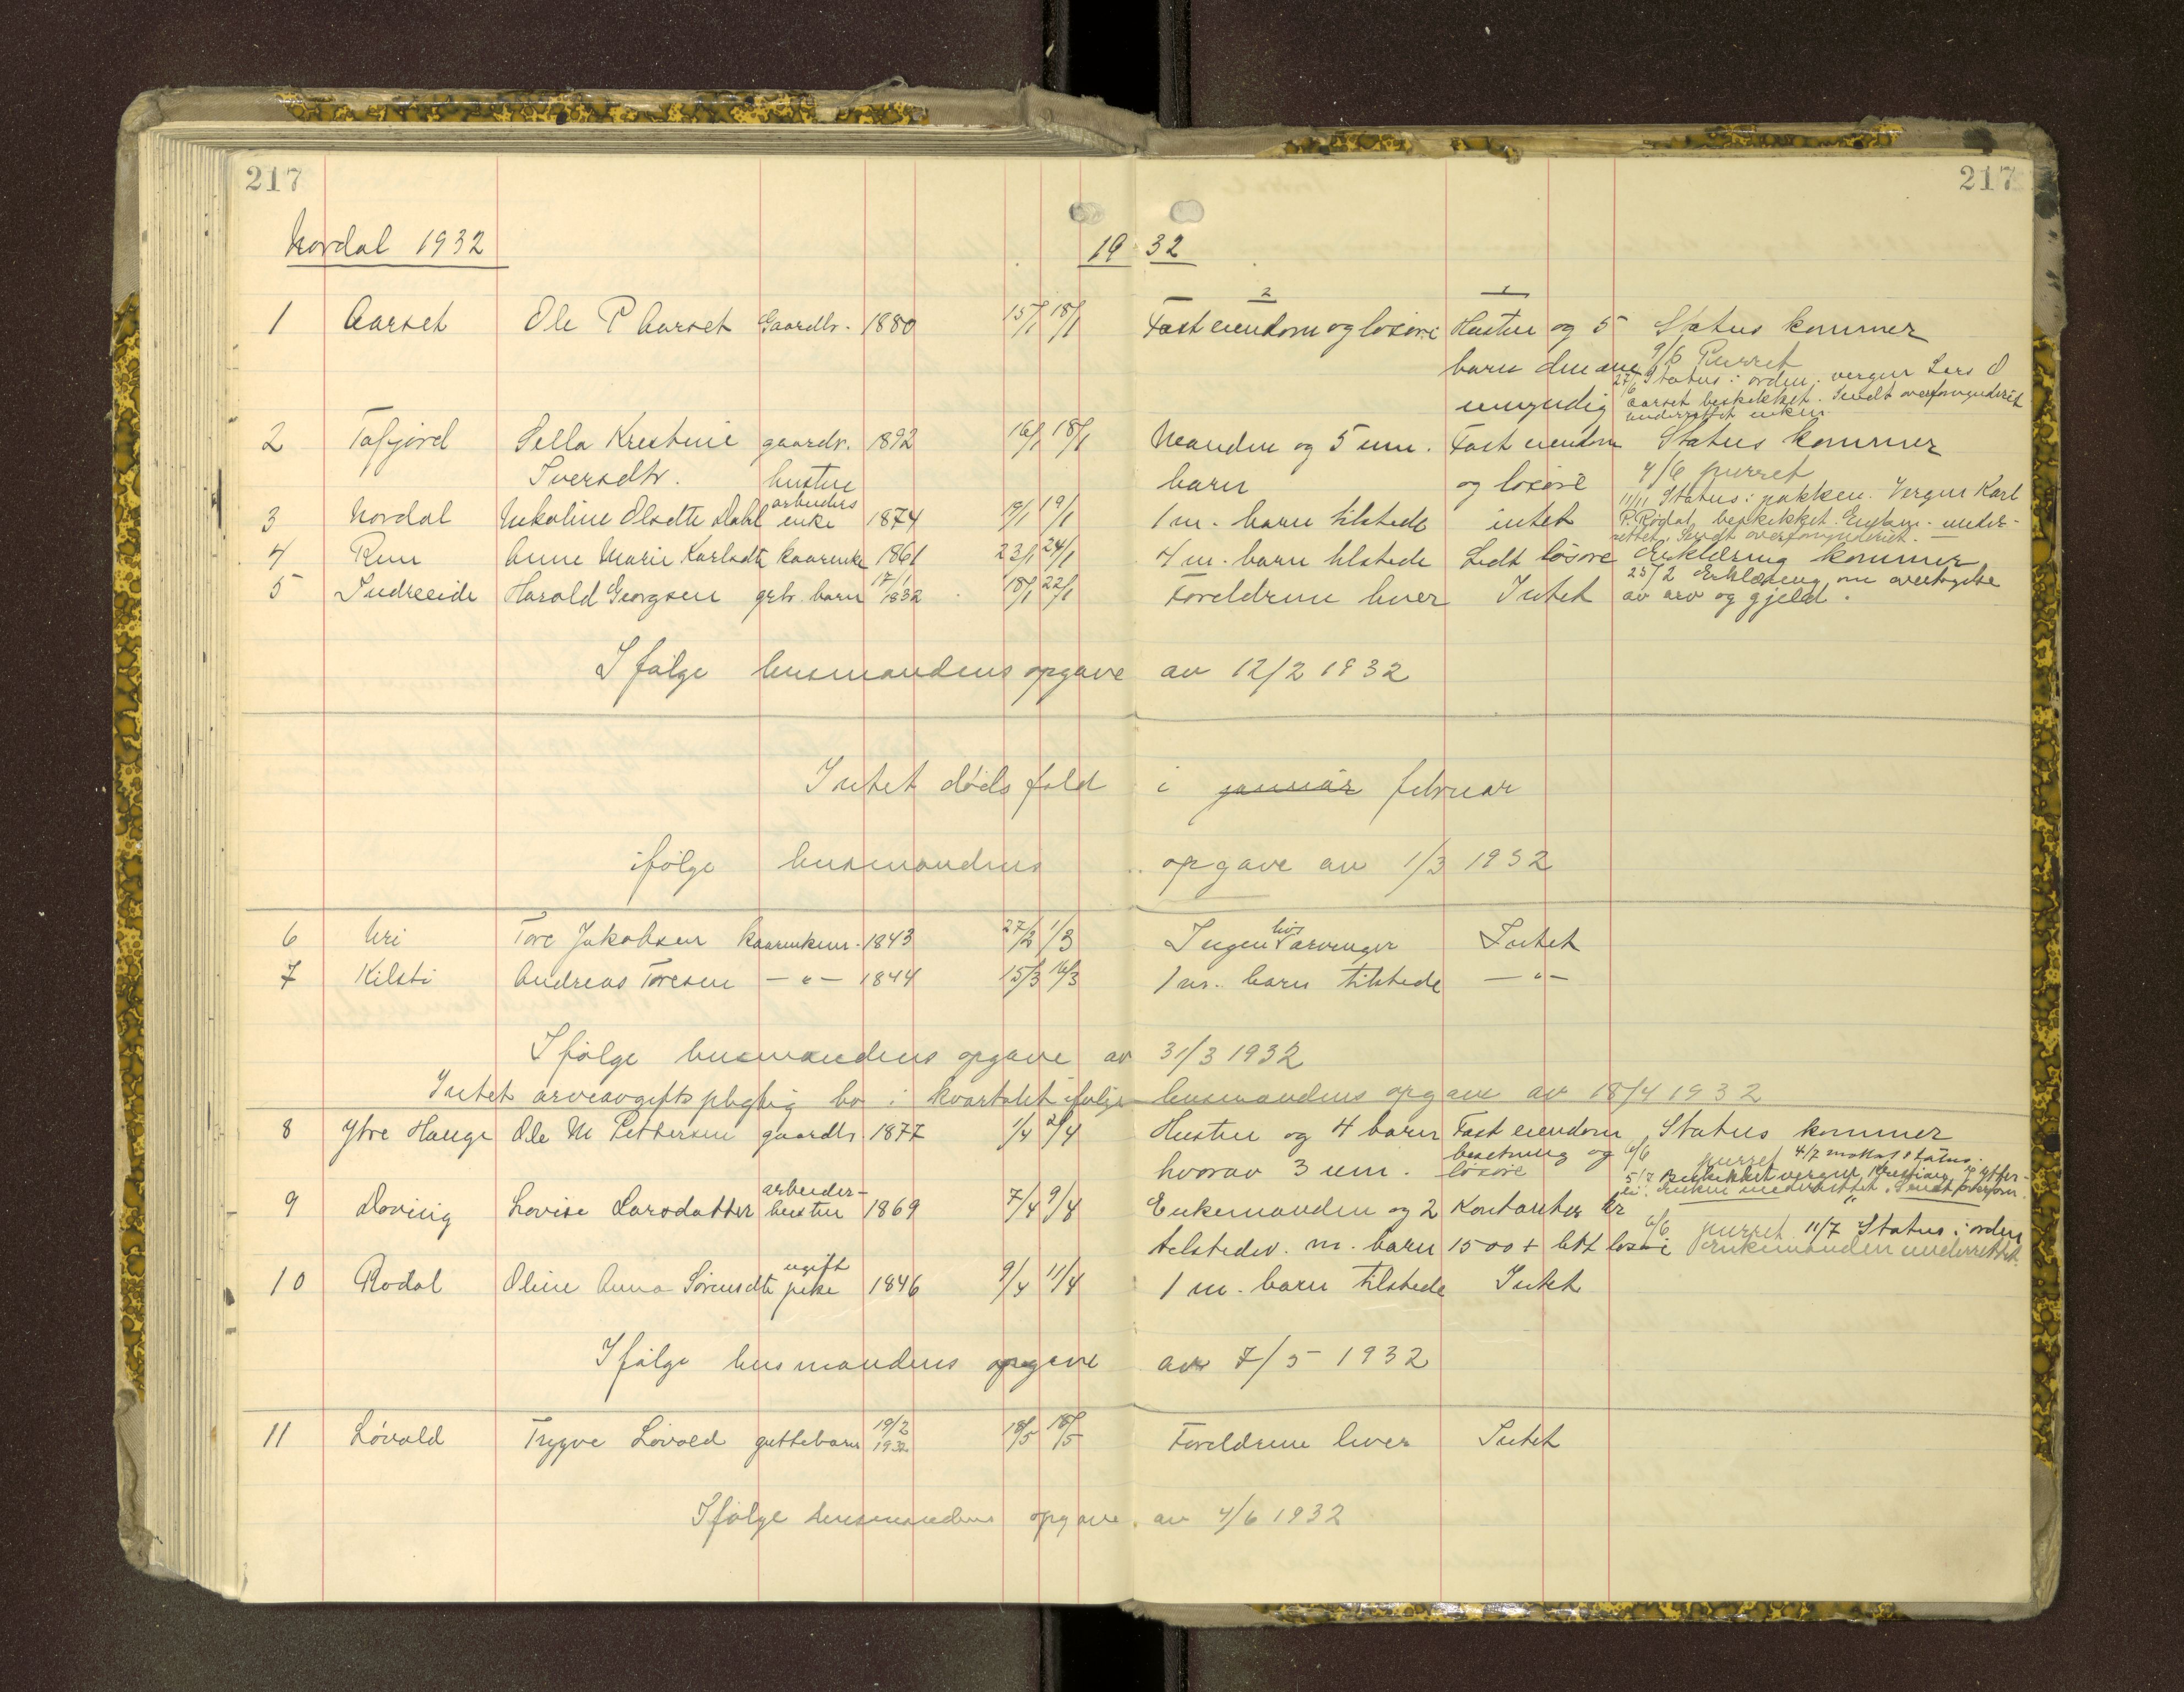 217
217
Nordal 1932
19 32
2 1
1 Aarset Ole P Aarset Gaardbr. 1880 15/1 18/1 Fast eiendom og løsøre Hustru og 5 Status kommer
barn den ene 9/6 Purret
27/6 Status i orden. vergen Lars O
umyndig Aarset beskikket. Sendt overformynderiet
underrettet enken
2 Tafjord Sella Kristine gaardbr. 1892 16/1 18/1 Manden og 5 um. Fast eiendom Status kommer
Iversdtr. hustru barn og løsøre 4/6 purret
11/11 Status i pakken. Vergen Karl
3 Nordal Nikoline Olsdtr Dahl arbeiders enke 1874 19/1 19/1 1 m. barn tilstede intet P. Rødal beskikket. Enkem. under-
rettet. Sendt overformynderiet.
4 Rem Anne Marie Karlsdtr kaarenke 1861 23/1 24/1 4 m. barn tilstede Lidt løsøre Erklæring kommer
25/2 Erklæring om overtagelse
5 Indreeide Harold Georgsen grb. barn 17/1 1932 18/1 22/1 Foreldrene lever Intet av arv og gjeld.
Ifølge lensmandens opgave av 12/2 1932
Intet dødsfald i januar februar
ifølge lensmandens opgave av 1/3 1932
6 Uri Tore Jakobsen kaarenkem. 1843 27/2 1/3 Ingen livsarvinger Intet
7 Kilsti Andreas Toresen — " — 1844 15/3 16/3 1 m. barn tilstede — " —
Ifølge lensmandens opgave av 31/3 1932
Intet arveavgiftspligtig bo i kvartalet ifølge lensmandens opgave av 18/4 1932
8 Ytre Hauge Ole M Pettersen gaardbr. 1877 1/4 2/4 Hustru og 4 barn Fast eiendom Status kommer
hvorav 3 um. besetning og løsøre 6/6 purret 4/7 mottat status.
5/7 Beskikket vergen
Enken underrettet. Sendt overform.
9 Døving Lovise Larsdatter arbeider-hustru 1869 7/4 9/4 Enkemanden og 2 Kontanter kr
tilstedev. m. barn 1500 + litt løsøre 6/6 purret 11/7 Status i orden
Enkemanden underrettet.
10 Rødal Oline Anna Sørensdtr ugift pike 1846 9/4 11/4 1 m. barn tilstede Intet
Ifølge lensmandens opgave av 7/5 1932
11 Løvold Trygve Løvold guttebarn 19/2 1932 18/5 18/5 Foreldrene lever Intet
Ifølge lensmandens opgave av 4/6 1932